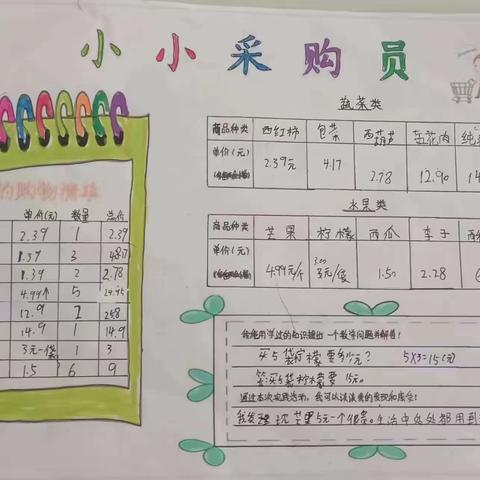 小小采购员
的购物清单
单价(元) 数量 总价
2.39 1 2.39
8.39 3
8.39 2 2.78
4.99个 5 24.95
12.9 2 258
14.9 1 14.9
3元一袋 1 3
1.5 6 9
蔬菜类
商品种类 西红柿 包菜 西葫芦 五花肉 纯
单价(元) 2.39元 4.17 2.78 12.90 14
水果类
商品种类 芒果 柠檬 西瓜 李子 西
单价(元) 4.99元/个 3元/袋 1.50 2.28
我能用学过的知识提出一个数学问题并解答!
买5袋柠檬要多少元? 5×3=15(元)
答:买5袋柠檬要15元。
通过本次实践活动,我可以谈谈我的发现和感受!
我发现芒果5元一个很贵。生活中处处都用到